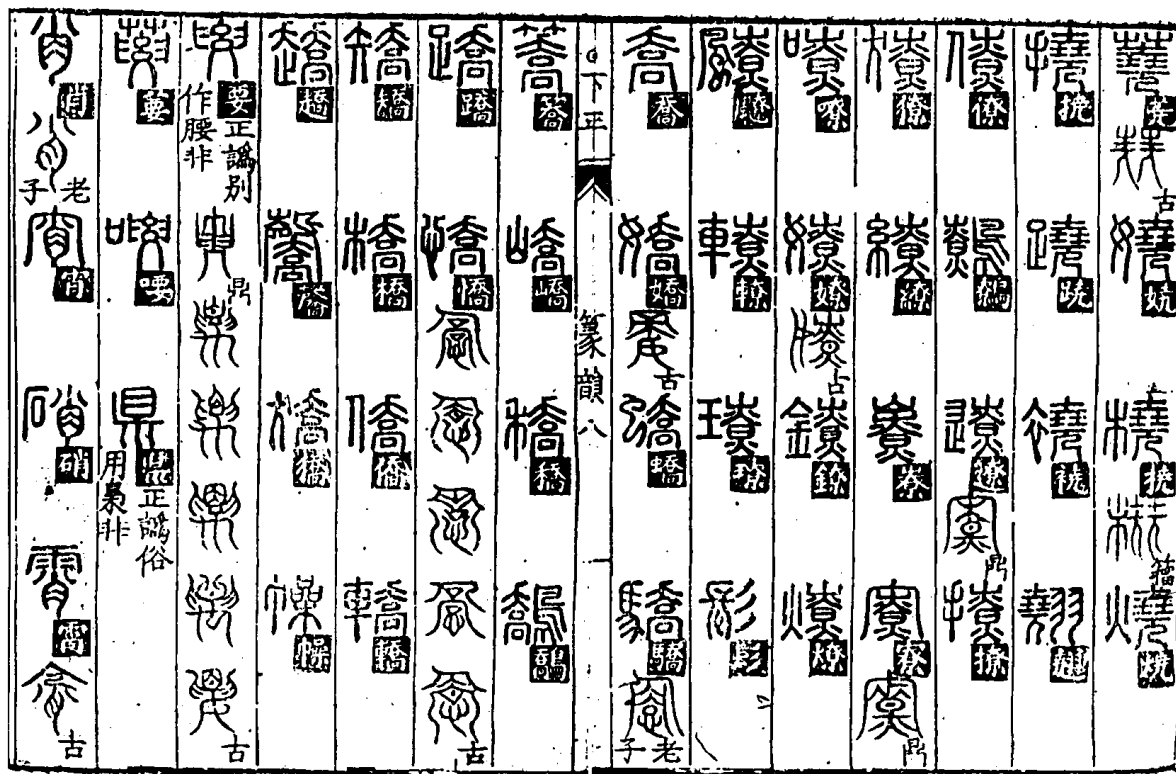 蕘 古 嬈 橈 籀 燒
撓 蹺 襓 翹
僚 鷯 遼 鼎 撩
獠 繚 尞 寮 鼎
嘹 嫽 古 鐐 燎
飉 轑 璙 髟
喬 嬌 古 蟜 驕 老子
下平 篆韻 八
蕎 嶠 穚 鷮
蹻 憍 古
矯 橋 僑 轎
趫 毊 獢 幧
要 正譌別作腰非 鼎 古
葽 喓 県 正譌俗用梟非
肖 老子 宵 硝 霄 古